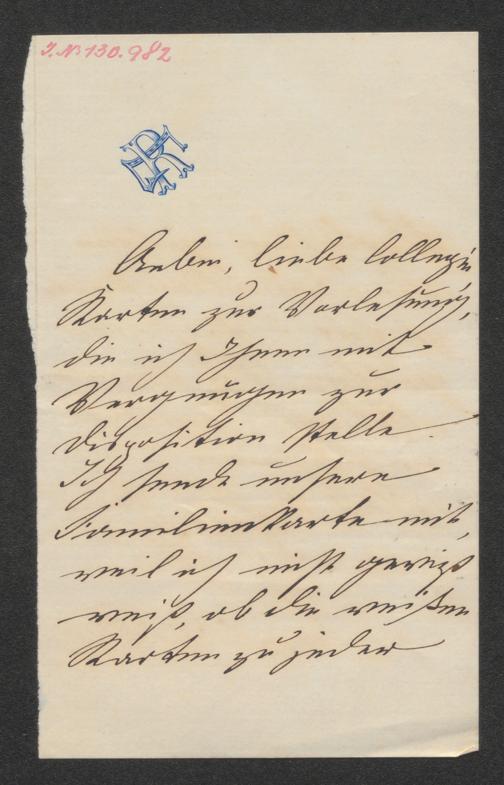 I. N. 130.982
Anbei, liebe Collegin
Karten zur Vorlesung,
die ich Ihnen mit
Vergnügen zur
Disposition stelle.
Ich sende unsere
Familienkarte mit,
weil ich nicht gewiß
weiß, ob die weißen
Karten zu jeder